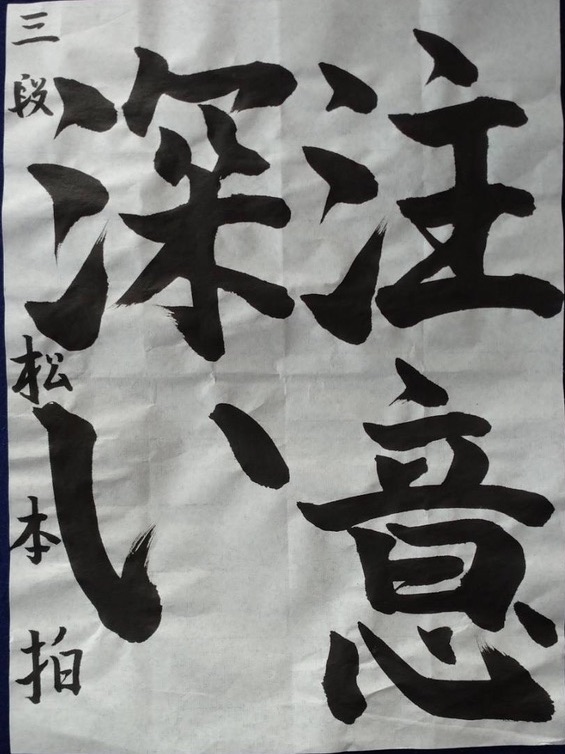 注意
深い
三段 松本 拍